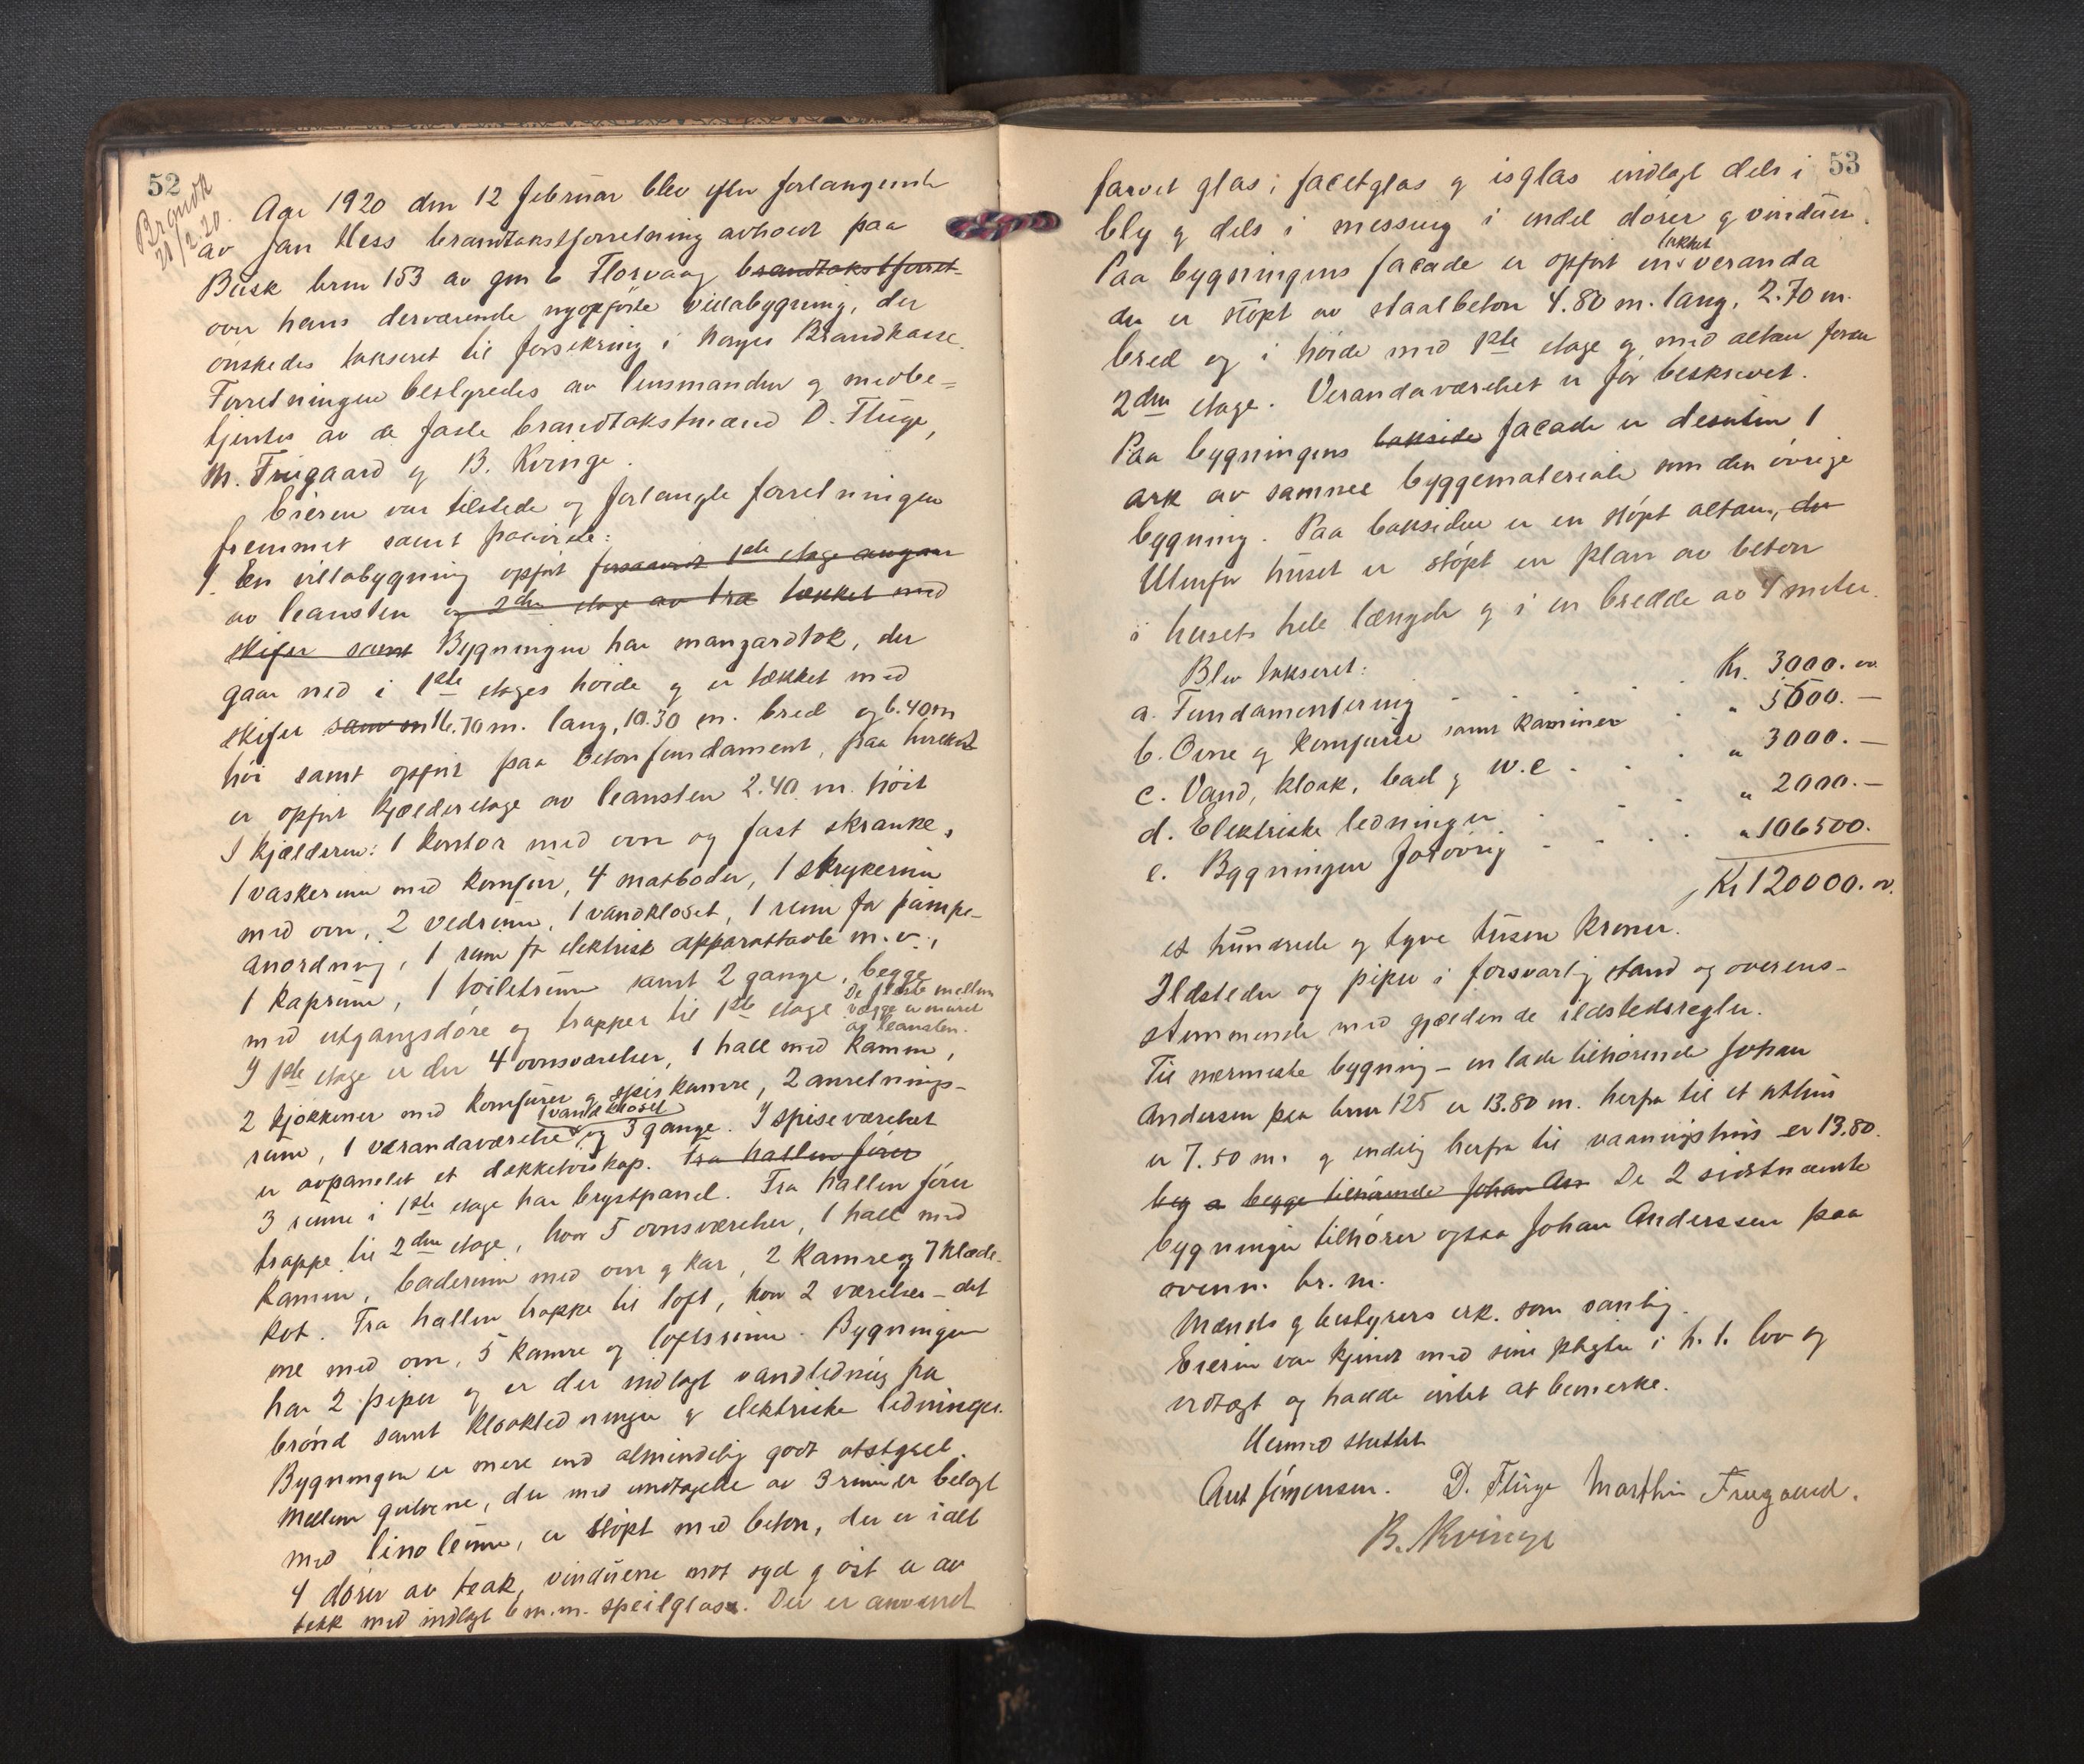 52
Brandk
21/2.20.
Aar 1920 den 12 februar blev efter forlangende
av Jan Hess brandtakstforretning avholdt paa
Busk brnr 153 av gnr 6 Florvaag brandtakstforret-
over hans derværende nyopførte villabygning, der
ønskedes takseret til forsikring i Norges Brandkasse.
Forretningen bestyredes av lensmanden og medbe=
tjentes av de faste brandtakstmænd D. Fluge,
M. Frugaard og B. Kvinge.
Eieren var tilstede og forlangte forretningen
fremmet samt paaviste:
1. En villabygning opført 1ste etage
av leansten og 2den etage av træ tækket med
skifer samt Bygningen har mangardtak, der
gaar ned i 1ste etages høide og er tækket med
skifer 16.70 m. lang, 10.30 m. bred og 6.40 m
høi samt opført paa betonfundament, paa hvilket
er opført kjælderetage av leansten 2.40 m. høit
I kjælderen: 1 kontor med ovn og fast skranke,
1 vaskerum med komfur, 4 matboder, 1 strykerum
med ovn, 2 vedrum, 1 vandkloset, 1 rum for pumpe-
anordning, 1 rum for elektrisk apparattavle m.v.,
1 kaprum, 1 toiletrum samt 2 gange, begge
med utgangsdøre og trapper til 1ste etage
De fleste mellem
vægge er muret
av leansten.
I 1ste etage er der 4 ovnsværelser, 1 hall med kamin,
2 kjøkkener med komfurer og spiskamre, 2 anretnings-
1 vandkloset
rum, 1 værandaværelse og 3 gange. I spiseværelset
er avpanelet et dækketøiskap. Fra hallen fører
3 rum i 1ste etage har brystpanel. Fra hallen fører
trappe til 2den etage, hvor 5 ovnsværelser, 1 hall med
kamin, baderum med ovn og kar, 2 kamre og 7 klæde-
kot. Fra hallen trappe til loft, hvor 2 værelser – det
ene med ovn, 5 kamre og loftsrum. Bygningen
har 2 piper og er der indlagt vandledning fra
brønd samt kloakledninger og elektriske ledninger.
Bygningen er mere end almindelig godt utstyret.
Mellem gulvene, der med undtagelse av 3 rum er belagt
med linoleum, er støpt med beton, der er ialt
4 dører av teak, vinduerne mot syd og øst er av
teak med indlagt 6 m.m. speilglas. Der er anvendt
53
farvet glas, facetglas og isglas indlagt dels i
bly og dels i messing i endel dører og vinduer.
lukket
Paa bygningens facade er opført en veranda
der er støpt av staalbeton 4.80 m. lang, 2.70 m.
bred og i høide med 1ste etage og med altan foran
2den etage. Verandaværelset er før beskrevet.
Paa bygningens bakside facade er desuten 1
ark av samme byggemateriale som den øvrige
bygning. Paa baksiden er en støpt altan, der
Utenfor huset er støpt en plan av beton
i husets hele længde og i en bredde av 4 meter.
Blev takseret:
a. Fundamentering - - . Kr. 3000. -
b. Ovne og komfurer samt kaminer . " 5500. —
c. Vand, kloak, bad og W.C . . . " 3000. —
d. Elektriske ledninger . - - " 2000. —
e. Bygningen forøvrig - - . . " 106500.
Kr 120000.
et hundrede og tyve tusen kroner.
Ildsteder og piper i forsvarlig stand og overens-
stemmende med gjældende ildstedsregler.
Til nærmeste bygning – en lade tilhørende Johan
Andersen paa brnr 125 er 13.80 m. herfra til et uthus
er 7.50 m. og endelig herfra til vaaningshus er 13.80.
begge tilhørende Johan An De 2 sidstnævnte
bygninger tilhører ogsaa Johan Anderssen paa
ovenn. br. nr.
Mænds og bestyrers erk. som vanlig.
Eieren var kjendt med sine pligter i h. t. lov og
vedtægt og hadde intet at bemerke.
Hermed sluttet
Ant Simonsen. D. Fluge Marthin Frugaard.
B. Kvinge